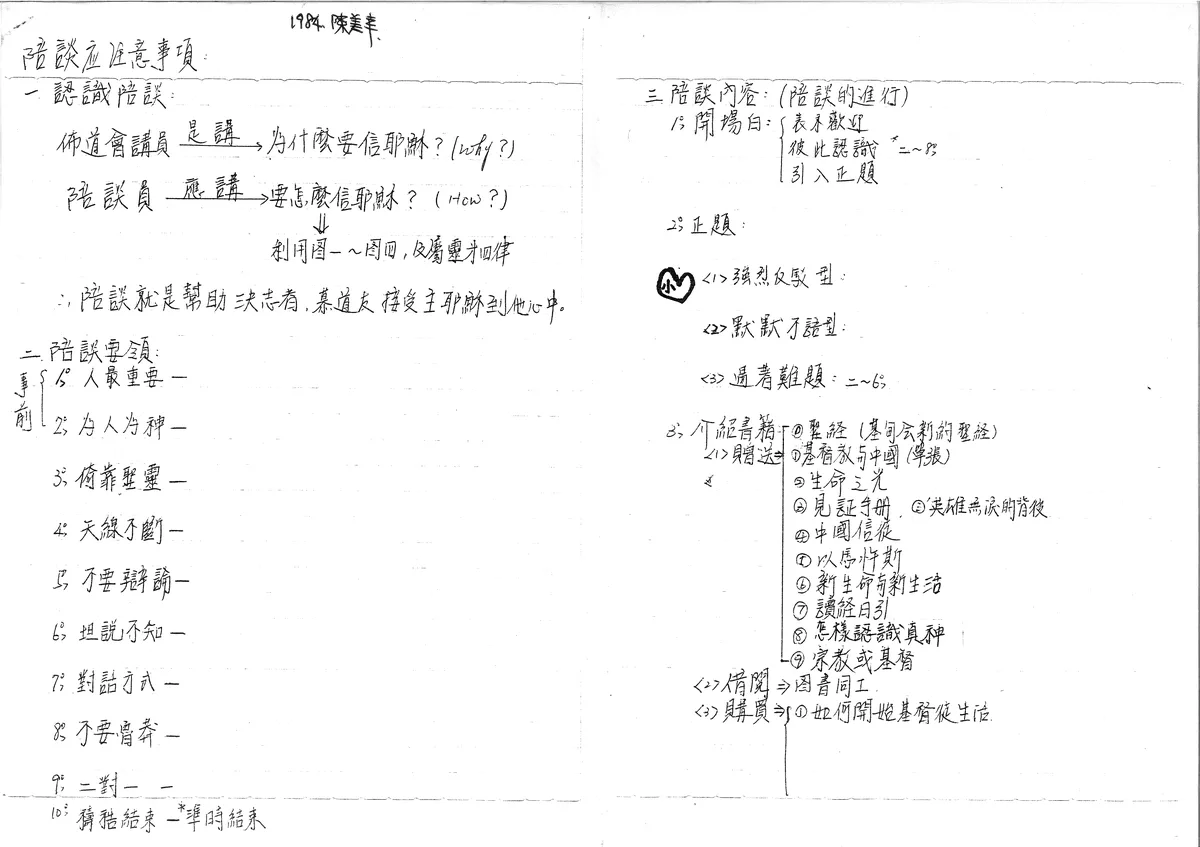 1984. 陳美幸
陪談应注意事項:
一 認識陪談:
佈道會講員 是講→ 为什麼要信耶穌?(Why?)
陪談員 應講→ 要怎麼信耶穌?(How?)
⇓
利用图一~图四,及屬靈四律
∴ 陪談就是幫助決志者,慕道友接受主耶穌到他心中。
二 陪談要領:
事前
1; 人最重要 —
2; 为人为神 —
3; 倚靠聖靈 —
4; 天線不斷 —
5; 不要辯論 —
6; 坦說不知 —
7; 對話方式 —
8; 不要魯莽 —
9; 二對一 —
10; 結束 — *準時結束
三 陪談內容:(陪談的進行)
1; 開場白: 表示歡迎
彼此認識 *二~8;
引入正題
2; 正題:
小
<1> 強烈反駁型:
<2> 默默不語型:
<3> 遇著難題: 二~6;
3; 介紹書籍: ⓪ 聖経 (基甸会新約聖経)
<1> 贈送⇒ ① 基督教与中國 (單張)
生命之光
見証手册 . 英雄無淚的背後
④ 中國信徒
以馬忤斯
⑥ 新生命与新生活
⑦ 讀経日引
⑧ 怎樣認識真神
⑨ 宗教或基督
<2> 借閱 ⇒ 图書同工
<3> 購買 ⇒ ① 如何開始基督徒生活